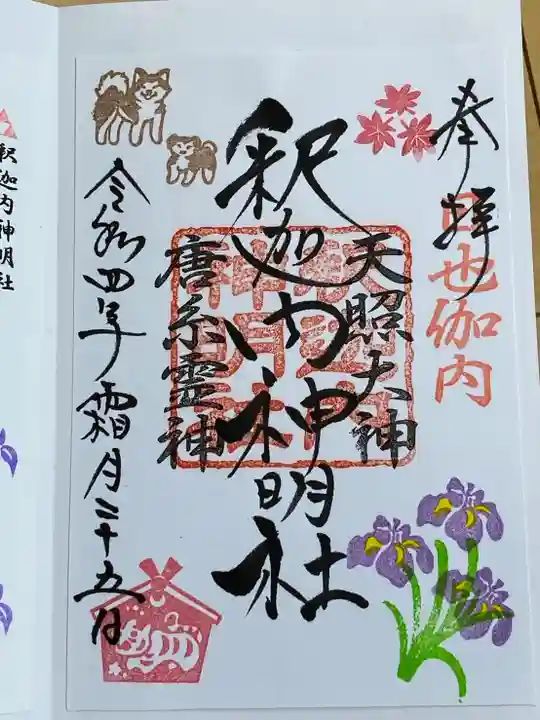 奉拝
日也伽内
天照大神
釈迦内神明社
唐糸靈神
令和四年霜月二十五日
釈迦内神明社